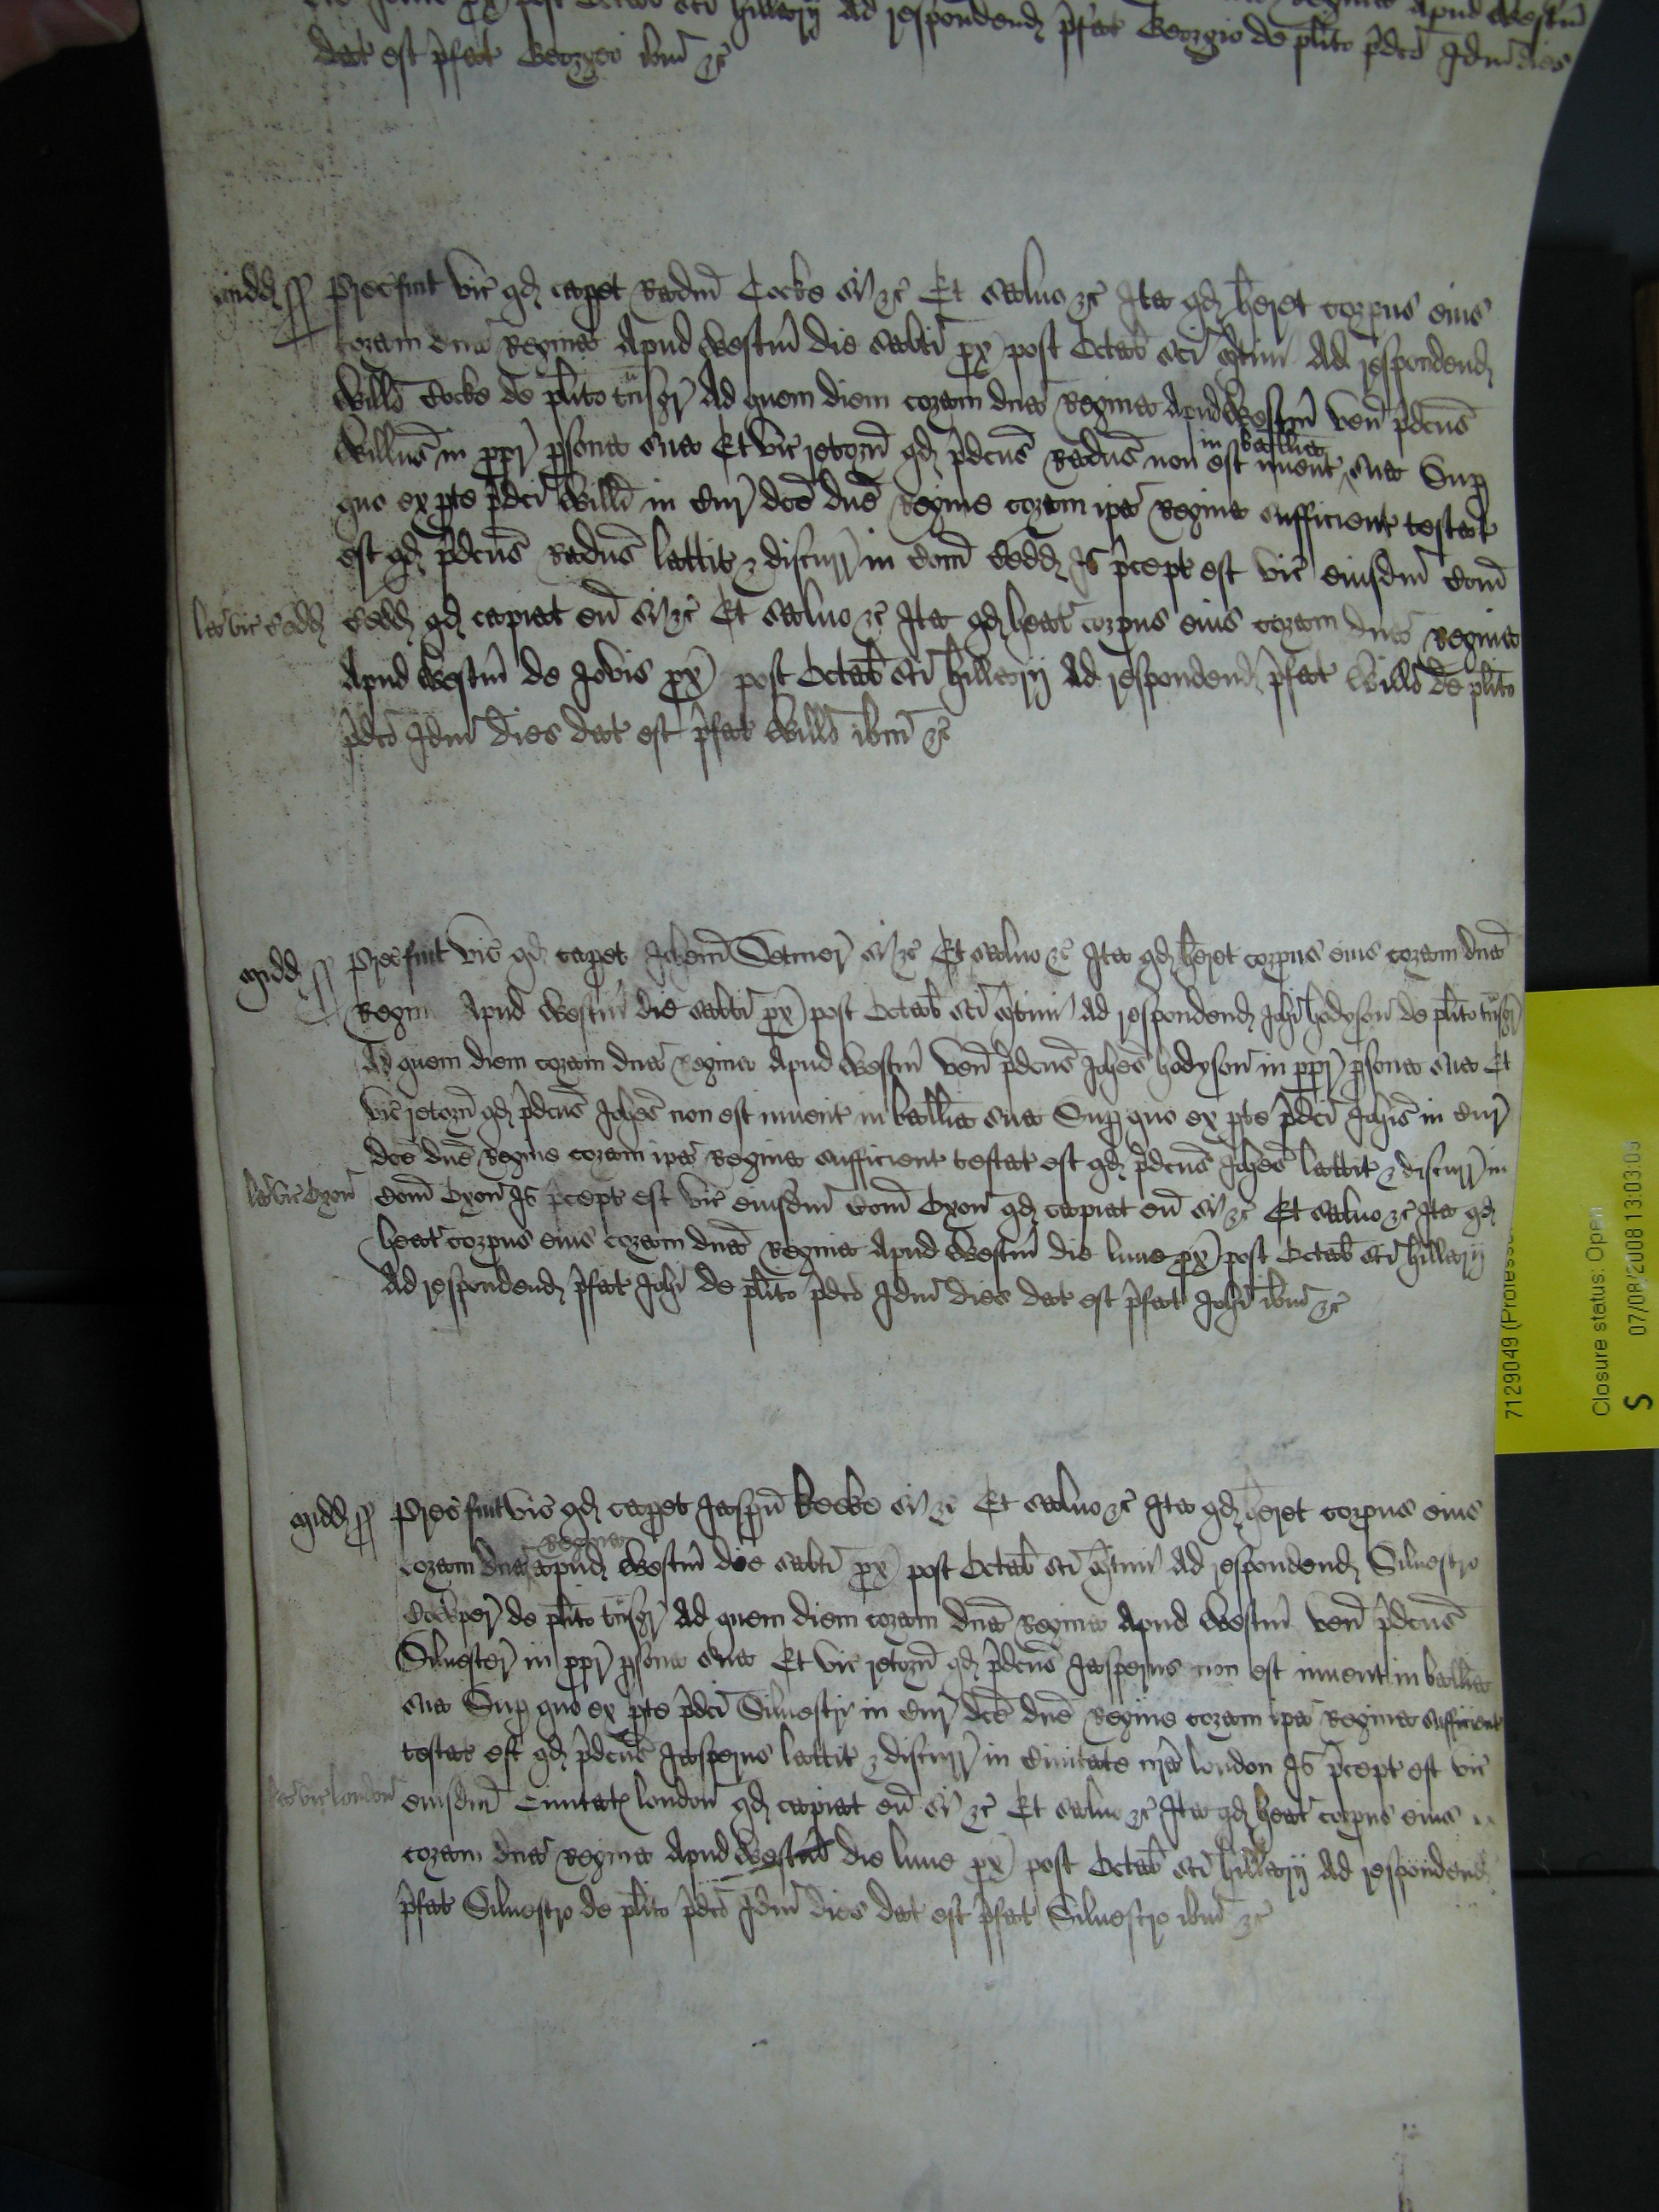 hillarij Ad respondend p̃fat Georgio de pl̃ito p̃dc̃o Idm̃ dies
dat est p̃fat Georgio ibm̃ &c̃
Midd ss Prec̃ fuit vic̃ qd̛ cap̛et Radm̃ Cocke si &c̃ Et salvo &c̃ Ita qd̛ h̃eret corpus eius
coram dn̄a Regina Apud Westm̃ die sabti px̃ post Octab̃ sc̃i M̃tini Ad respondend̛
Willo Cocke de pl̃ito tn̄sgr̃ Ad quem diem coram dn̄a Regina Apud Westm̃ ven̄ p̃dcus
Willus in ppr̃ psona sua Et vic̃ retorn̄ qd̛ p̃dcus Radus non est invent in ball̃iva sua Sup
quo ex pte p̃dc̃i Willi in Cur̃ dc̃e dn̄e Regine coram ip̃a Regina sufficient testat
est qd̛ p̃dcus Radus latitt & discurr̃ in Com̃
p̃cept est vic̃ eiusdm̃ Com̃
qd̛ capiat eū si &c̃ Et salvo &c̃ Ita qd̛ heat corpus eius coram dn̄a Regina
Apud Westm̃ de Jovis px̃ post Octab̃ sc̃i hillarij Ad respondend̛ p̃fat Willo de pl̃ito
p̃dc̃o Idm̃ dies dat est p̃fat Willo ibm̃ &c̃
Midd ss Prec̃ fuit vic̃ qd̛ cap̛et Joh̃em si &c̃ Et salvo &c̃ Ita qd̛ h̃eret corpus eius coram dn̄a
Regin Apud Westm̃ die sabti px̃ post Octab̃ sc̃i M̃tini Ad respondend̛ Joh̃i hodgson de pl̃ito tn̄sgr̃
Ad quem diem coram dn̄a Regina Apud Westm̃ ven̄ p̃dcus Joh̃es hodgson in ppr̃ psona sua Et
vic̃ retorn̄ qd̛ p̃dcus Joh̃es non est invent in ball̃ia sua Sup quo ex pte p̃dc̃i Joh̃is in Cur̃
dc̃e dn̄e Regine coram ip̃a Regina sufficient testat est qd̛ p̃dcus Joh̃es latitt & discurr̃ in
la vic̃ Oxon̄ Com̃ Oxon̄ Iō p̃cept est vic̃ eiusdm̃ Com̃ Oxon̄ qd̛ capiat eū si &c̃ Et salvo &c̃ Ita qd̛
heat corpus eius coram dn̄a Regina Apud Westm̃ die lune px̃ post Octab̃ sc̃i hillarij
Ad respondend̛ p̃fat Joh̃i de pl̃ito p̃dc̃o Idm̃ dies dat est p̃fat Joh̃i ibm̃ &c̃
Midd ss Prec̃ fuit vic̃ qd̛ cap̛et Jaspū kecke si &c̃ Et salvo &c̃ Ita qd̛ h̃eret corpus eius
coram dn̄a Regina apud Westm̃ die sabti px̃ post Octab̃ sc̃i M̃tini Ad respondend̛ Silvestro
Cowper̃ de pl̃ito tn̄sgr̃ Ad quem diem coram dn̄a Regina Apud Westm̃ ven̄ p̃dcus
Silvester̃ in ppr̃ psona sua Et vic̃ retorn̄ qd̛ p̃dcus Jasperus non est invent in ball̃ia
sua Sup quo ex pte p̃dc̃i Silvestr̃ in Cur̃ dc̃e dn̄e Regine coram ip̃a Regina sufficient
testat est qd̛ p̃dcus Jasperus latitt & discurr̃ in Civitate nr̃a london Iō p̃cept est vic̃
la vic̃ london̄ eiusdm̃ Civitat̛ london̄ qd̛ capiat eū si &c̃ Et salvo &c̃ Ita qd̛ heat corpus eius
coram dn̄a Regina Apud Westm̃ die lune px̃ post Octab̃ sc̃i hillarij Ad respondend̛
p̃fat Silvestro de pl̃ito p̃dc̃o Idm̃ dies dat est p̃fat Silvestro ibm̃ &c̃
7129049 (Profess
Closure status: Open
07/08/2008 13:03:03
S